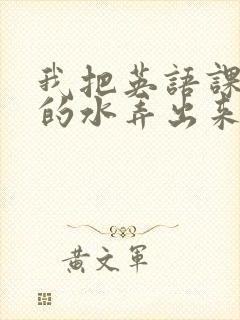 我把英語課
的水弄出来
黃文軍